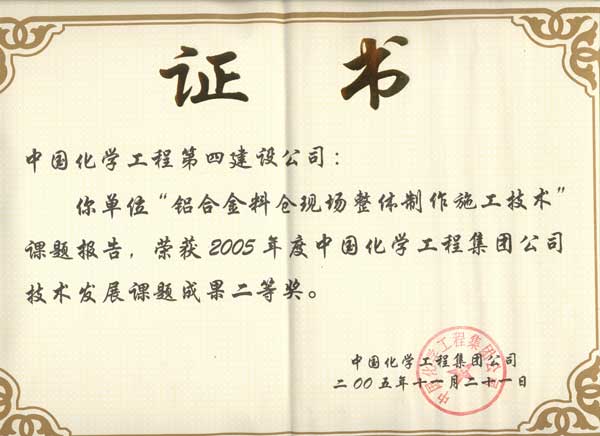 证 书
中国化学工程第四建设公司：
你单位“铝合金料仓现场整体制作施工技术”
课题报告，荣获2005年度中国化学工程集团公司
技术发展课题成果二等奖。
中国化学工程集团公司
二OO五年十一月二十一日
中国化学工程集团公司